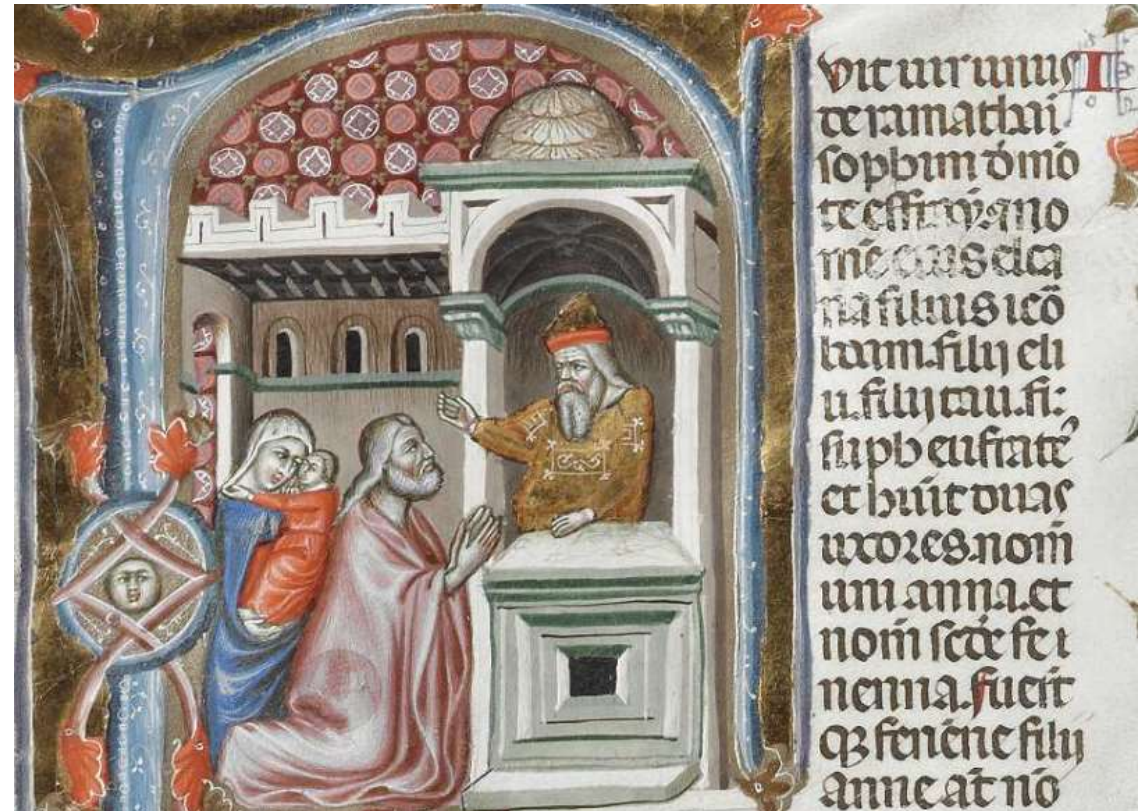 vit uir unus I
de ramathai
sophim d mo
te effraym no
me eius elca
na filius ieo
boam. filii eli
u. filii tau. fi:
suph eufrate
et huit duas
uxores. nom
uni anna. et
nom scde fe i
nenna. fuerut
q3 fenene filii
anne at no